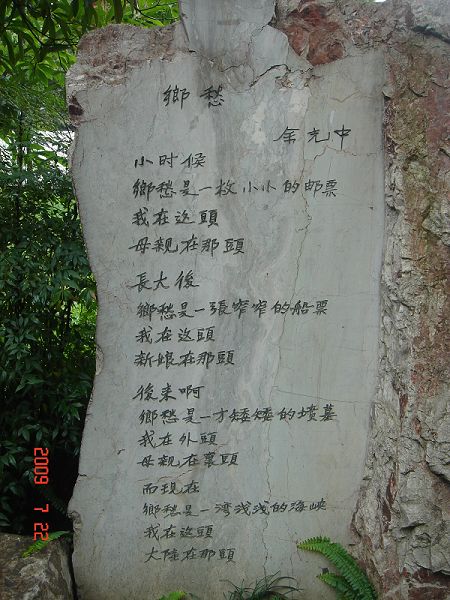 鄉愁
余光中
小时候
鄉愁是一枚小小的邮票
我在这頭
母親在那頭
長大後
鄉愁是一張窄窄的船票
我在这頭
新娘在那頭
後来啊
鄉愁是一方矮矮的墳墓
我在外頭
母親在裏頭
而現在
鄉愁是一湾浅浅的海峡
我在这頭
大陸在那頭
2009 7 22